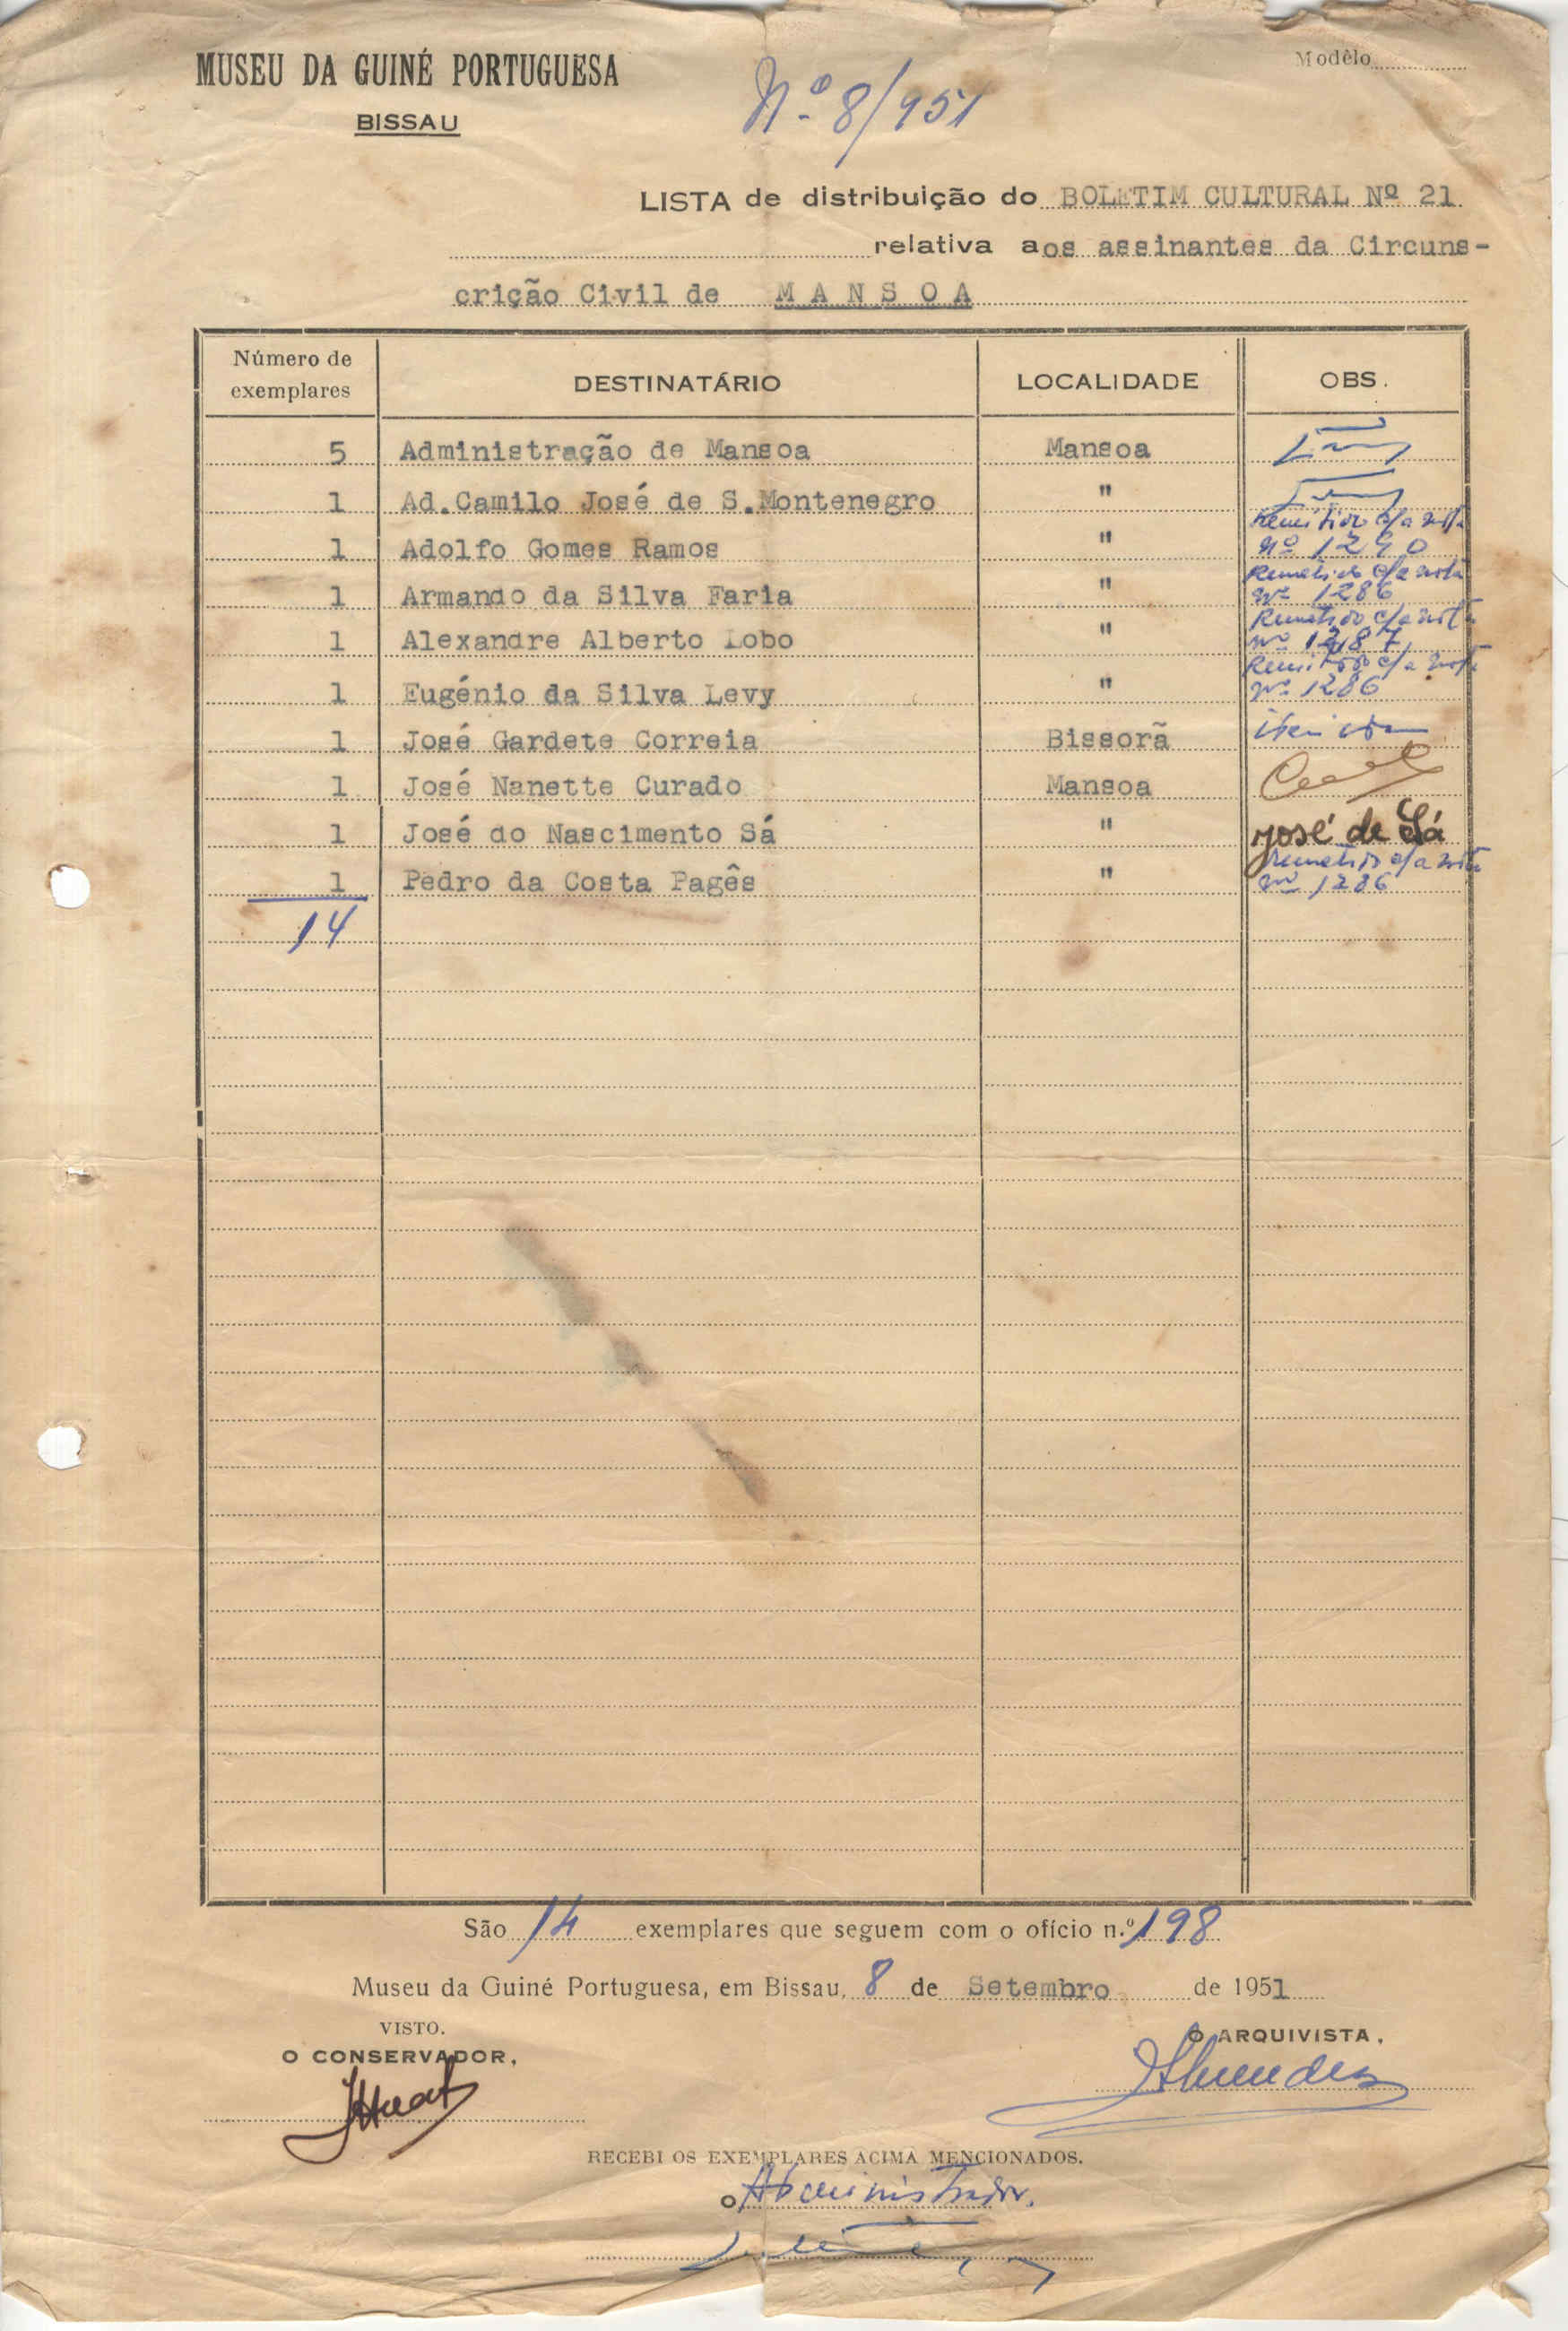 MUSEU DA GUINÉ PORTUGUESA
BISSAU
Modêlo
Nº 8/951
LISTA de distribuição do BOLETIM CULTURAL Nº 21
relativa aos assinantes da Circuns-
crição Civil de MANSOA
Número de exemplares DESTINATÁRIO LOCALIDADE OBS.
5 Administração de Mansoa Mansoa
1 Ad.Camilo José de S.Montenegro "
1 Adolfo Gomes Ramos " Remetido c/a nota nº 1290
1 Armando da Silva Faria " Remetido c/a nota nº 1286
1 Alexandre Alberto Lobo " Remetido c/a nota nº 1287
1 Eugénio da Silva Levy " Remetido c/a nota nº 1286
1 José Gardete Correia Bissorã
1 José Nanette Curado Mansoa
1 José do Nascimento Sá " José de Sá
1 Pedro da Costa Pagês " Remetido c/a nota nº 1286
14
São 14 exemplares que seguem com o ofício n.º 198
Museu da Guiné Portuguesa, em Bissau, 8 de Setembro de 1951
VISTO.
O CONSERVADOR,
O ARQUIVISTA,
RECEBI OS EXEMPLARES ACIMA MENCIONADOS.
O Administrador.